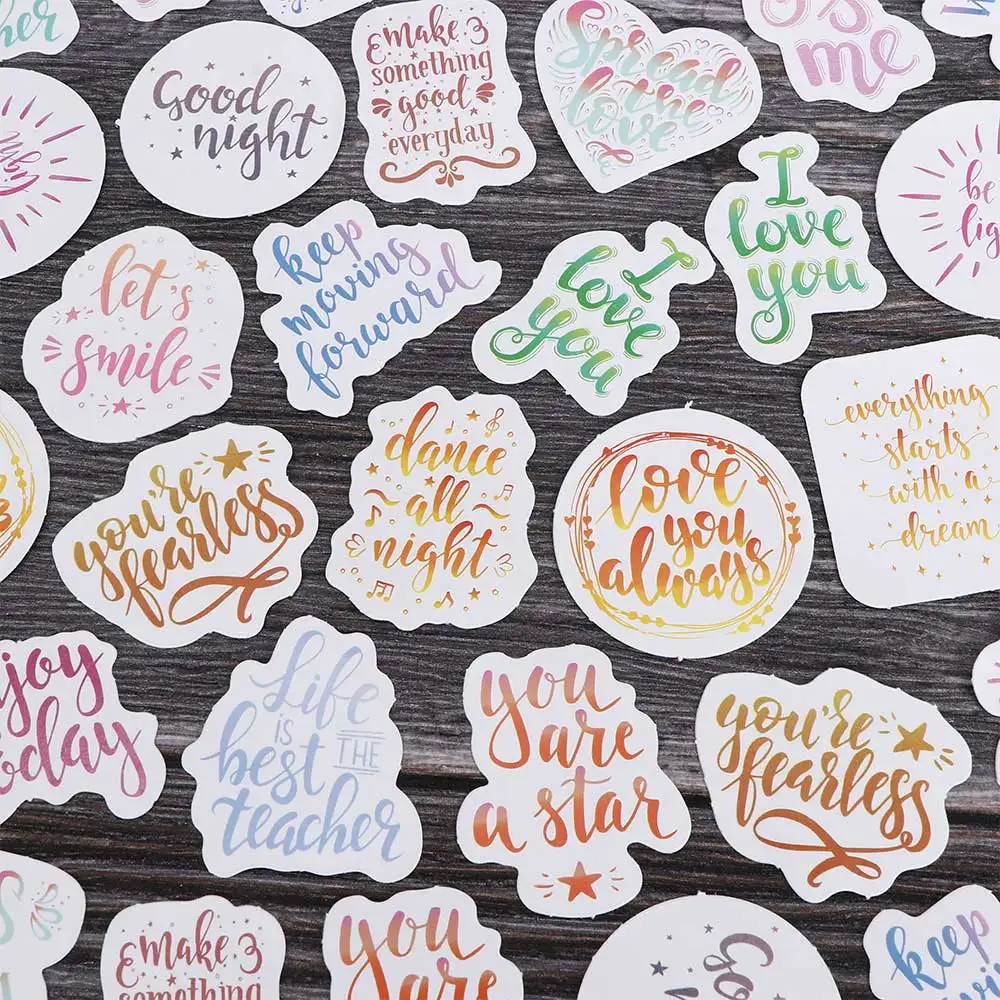 her
Good
night
make
something
good
everyday
Spread
the
love
me
be
let's
smile
keep
moving
forward
I
love
you
I
love
you
everything
starts
with a
dream
you're
fearless
dance
all
night
love
you
always
Life
is
best THE
teacher
you
are
a star
you're
fearless
today
make
something
you
are
keep